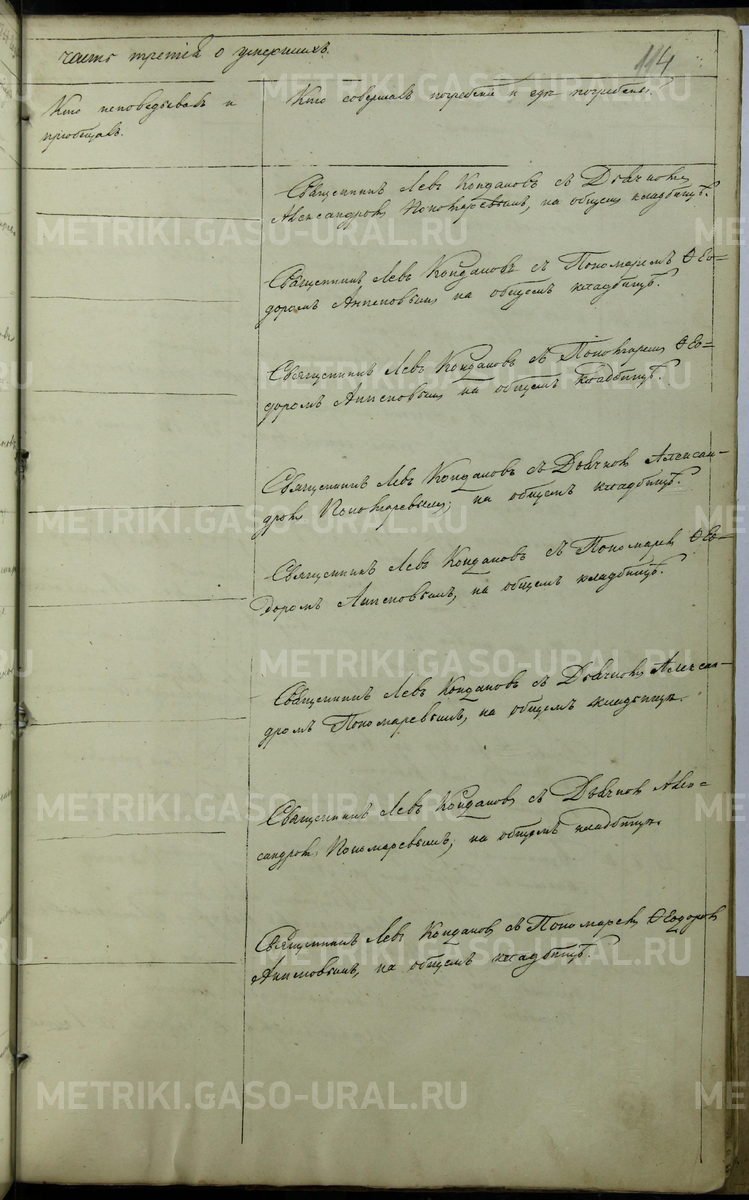 часть третія о умершихъ.
114
Кто исповѣдывалъ и
пріобщалъ.
Кто совершалъ погребеніе и гдѣ погребены.
Священникъ Левъ Кондаковъ съ Дьячкомъ
Александромъ Пономаревымъ, на общемъ кладбищѣ.
Священникъ Левъ Кондаковъ съ Пономаремъ Ѳео-
доромъ Анисимовымъ на общемъ кладбищѣ.
Священникъ Левъ Кондаковъ съ Пономаремъ Ѳео-
доромъ на общемъ кладбищѣ.
Священникъ Левъ Кондаковъ съ Дьячкомъ Алексан-
дромъ Пономаревымъ, на общемъ кладбищѣ.
Священникъ Левъ Кондаковъ съ Пономаремъ Ѳео-
доромъ на общемъ кладбищѣ.
Священникъ Левъ Кондаковъ съ Дьячкомъ Алексан-
дромъ Пономаревымъ, на общемъ кладбищѣ.
Священникъ Левъ Кондаковъ съ Дьячкомъ Алек-
сандромъ Пономаревымъ, на общемъ кладбищѣ.
Священникъ Левъ Кондаковъ съ Пономаремъ Ѳеодоромъ
на общемъ кладбищѣ.
METRIKI.GASO-URAL.RU